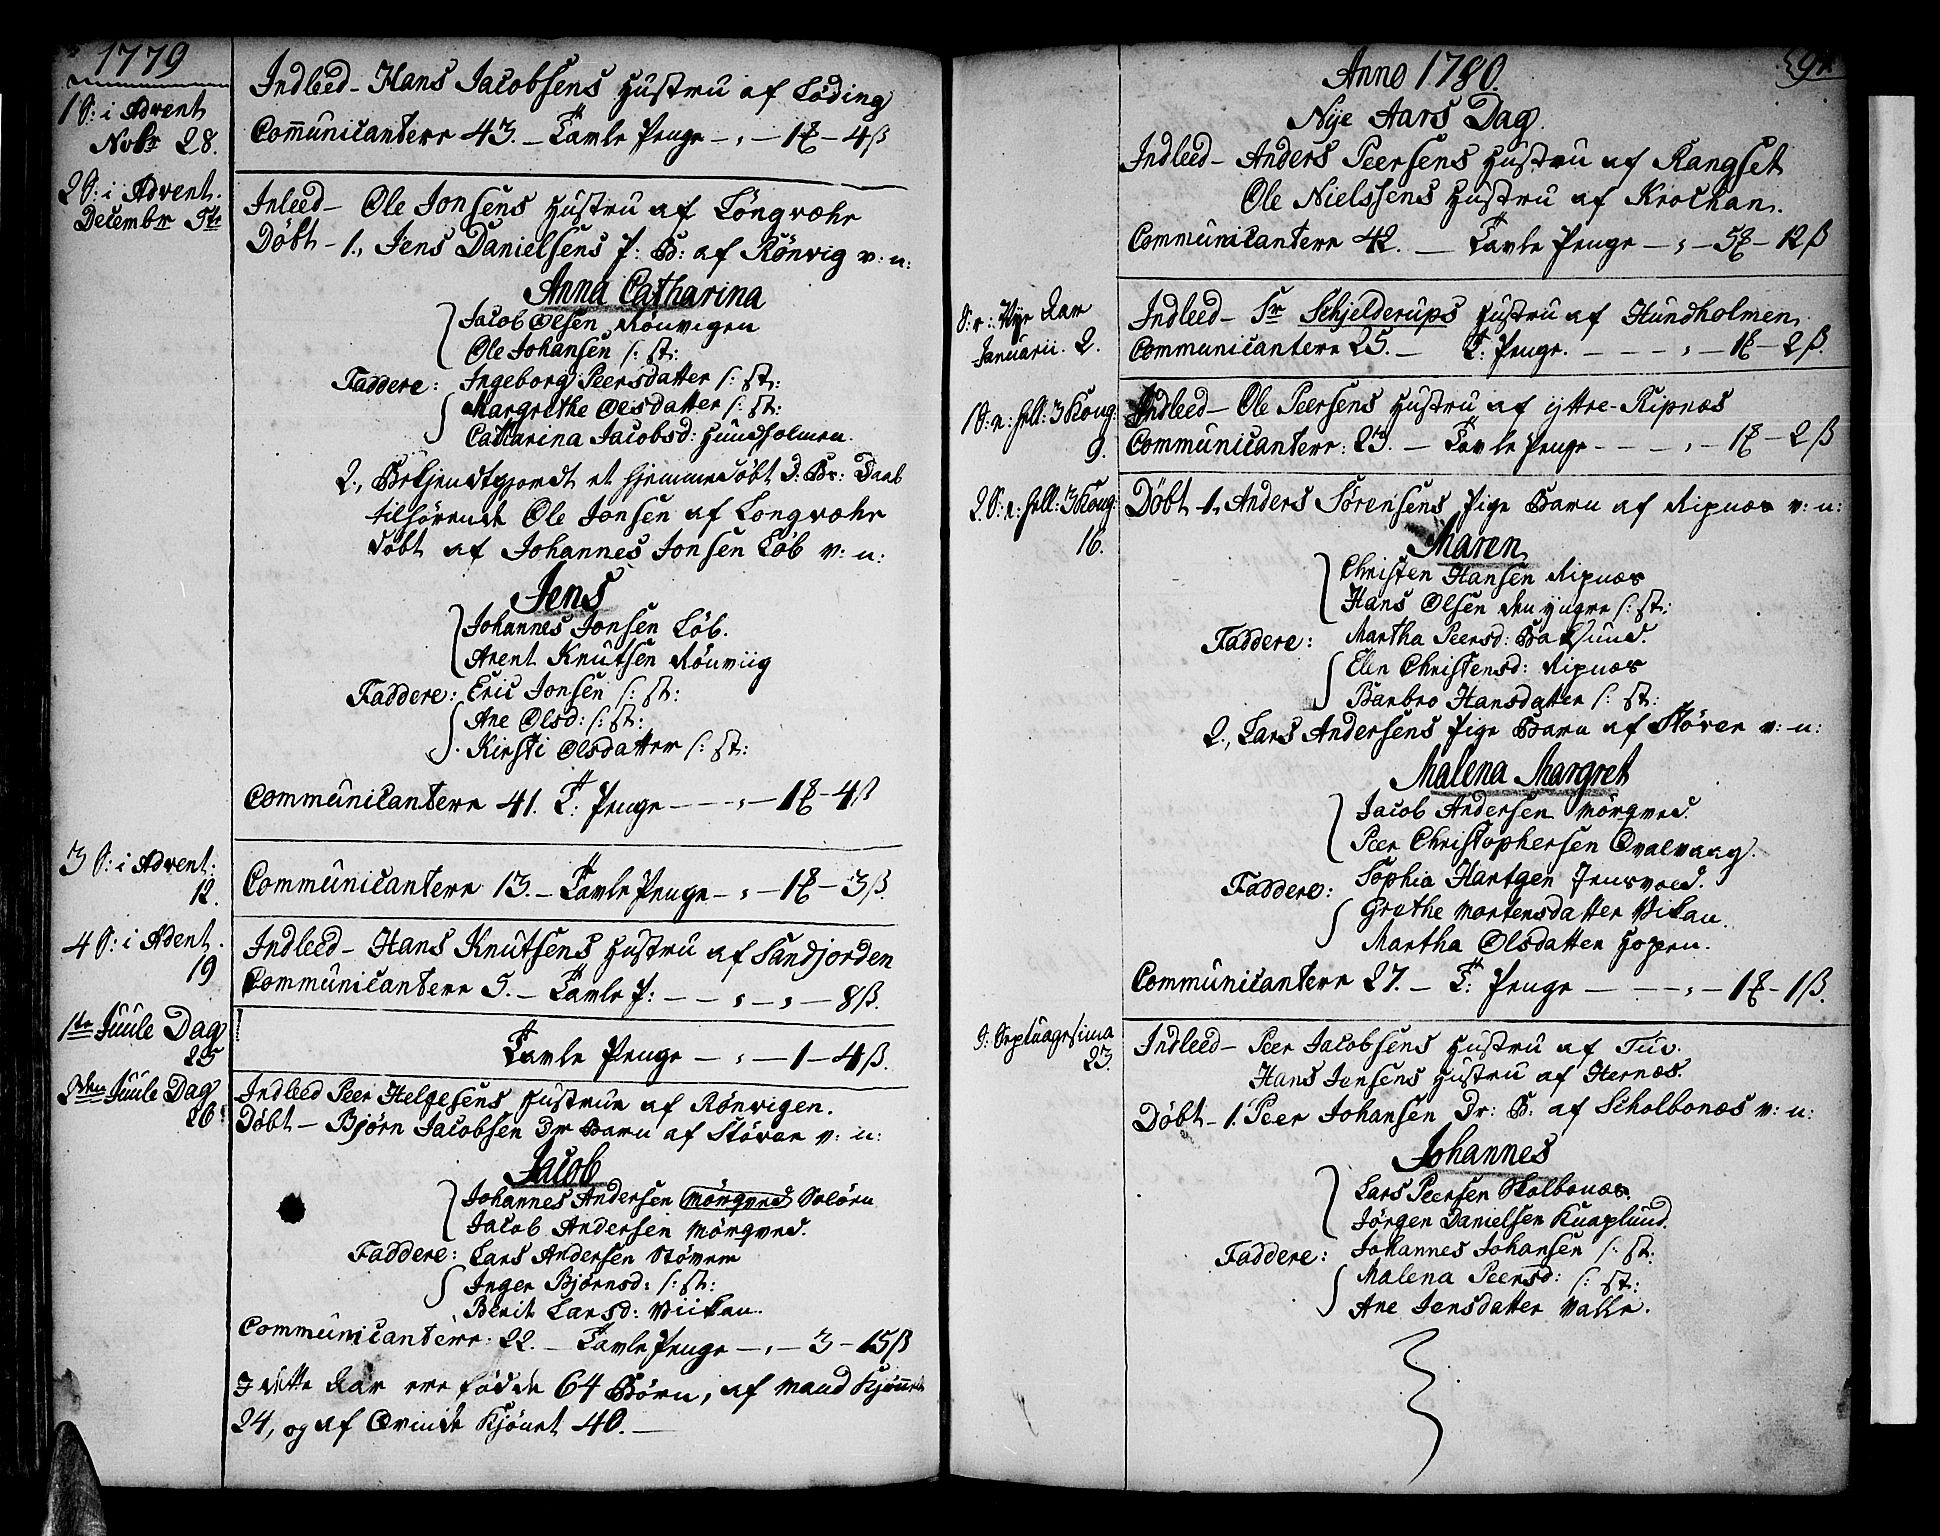 1779
1 S: i Advent
Nobr 28.
Indleed - Hans Jacobsens Hustru af Løding
Communicantere 43. - Tavle Penge - , - 1 ß - 4 ß
2 S: i Advent.
Decembr 5te
Inleed - Ole Jonsens Hustru af Løngvæhr
Døbt - 1., Jens Danielsens P: B: af Rønvig v: n:
Anna Catharina
Jacob Olsen Rønvigen
Ole Johansen S: st:
Faddere: Ingeborg Peersdatter S: st:
Margrethe Olsdatter S: st:
Catharina Jacobsd: Hundholmen.
2., Bekjendtgjordt et hjemmedøbt D: Br: Daab
tilhørende Ole Jonsen af Longvæhr
døbt af Johannes Jonsen Løb v: n:
Jens
Johannes Jonsen Løb.
Arent Knutsen Rønviig
Faddere: Eric Jonsen S: st:
Ane Olsd: S: st:
Kirsti Olsdatter S: st:
Communicantere 41. T: Penge - - , - 1 - 4 ß
3 S: i Advent.
12.
Communicantere 13. - Tavle Penge - , - 1 - 3 ß.
4 S: i Adent.
19
Indleed - Hans Knutsens Hustru af Sandjorden
Communicantere 5. - Tavle P: - - , - , - 8 ß.
1te Juule Dag
25
Tavle Penge - , - 1 - 4 ß.
2den Juule Dag
26
Indleed Peer Helgesens Hustrue af Rønvigen.
Døbt - Bjørn Jacobsen Dr Barn af Støver v: n:
Jacob
Johannes Andersen Mørqved Soløen
Jacob Andersen Mørqved.
Faddere: Lars Andersen Støver
Inger Bjørnsd: S: st:
Berit Larsd: Viikan.
Communicantere: 22. - Tavle Penge - , - 3 - 15 ß
I dette Aar ere fødde 64 Børn, af Mand Kjønnet
24, og af Qvinde Kjønet 40. -
Anno 1780.
Nye Aars Dag.
Indleed - Anders Peersens Hustru af Rangset
Ole Nielssens Hustru af Krochan.
Communicantere 42. - Tavle Penge - , - 5 - 12 ß
S: n: Nye Aar
Januarii. 2.
Indleed - Sr Schjelderups Hustru af Hundholmen.
Communicantere 25. - T: Penge. - - - , - 1 - 2 ß.
1 S: n: hell: 3 Kong:
9.
Indleed - Ole Peersens Hustru af yttre-Ripnæs
Communicantere: 23. - Tavle Penge - - - , - 1 - 2 ß
2 S: n: hell: 3 Kong:
16.
Døbt 1., Anders Sørensens Pige Barn af Ripnæs v: n:
Maren
Christen Hansen Ripnæs
Hans Olsen den yngre S: st:
Faddere: Martha Peersd: Badsund.
Elen Christensd: Ripnæs
Barbro Hansdatter S: st:
2., Lars Andersens Pige Barn af Støver v: n:
Malena Margret
Jacob Andersen Mørqved.
Peer Christophersen Qvalvaag.
Faddere: Sophia Hartgen Jensvold.
Grethe Mortensdatter Vikan.
Martha Olsdatter Hopen.
Communicantere 27. - T: Penge - - - , - 1 - 1 ß.
D: Septuagesima
23.
Indleed - Peer Jacobsens Hustru af Tuv.
Hans Jensens Hustru af Hernæs.
Døbt - 1. Peer Johansen Dr: B: af Scholbonæs v: n:
Johannes
Lars Peersen Skolbonæs.
Jørgen Danielsen Knaplund.
Faddere: Johannes Johansen S: st:
Malena Peersd: S: st:
Ane Jensdatter Valle.